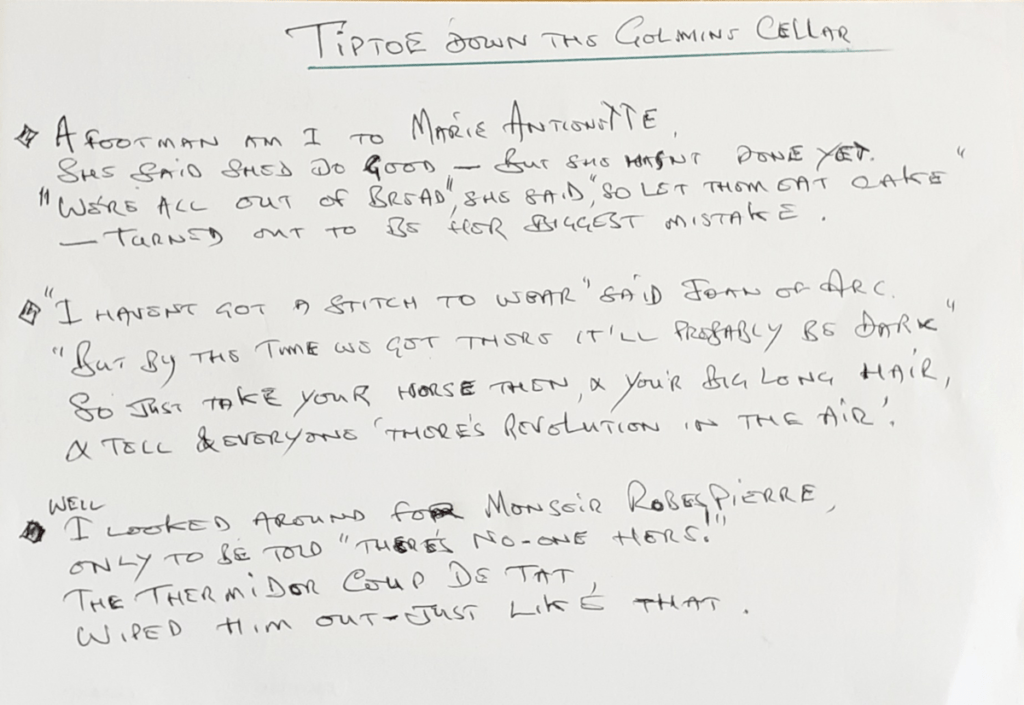 TIPTOE DOWN THE GOLMINE CELLAR
A FOOTMAN AM I TO MARIE ANTIONETTE,
SHE SAID SHED DO GOOD — BUT SHE HASNT DONE YET.
"WE'RE ALL OUT OF BREAD", SHE SAID, "SO LET THEM EAT CAKE"
— TURNED OUT TO BE HER BIGGEST MISTAKE.
"I HAVENT GOT A STITCH TO WEAR" SAID JOAN OF ARC.
"BUT BY THE TIME WE GET THERE IT'LL PROBABLY BE DARK"
SO JUST TAKE YOUR HORSE THEN, & YOU'R BIG LONG HAIR,
& TELL EVERYONE 'THERE'S REVOLUTION IN THE AIR'.
WELL
I LOOKED AROUND FOR MONSEIR ROBESPIERRE,
ONLY TO BE TOLD "THERE'S NO-ONE HERE!"
THE THERMIDOR COUP DE TAT,
WIPED HIM OUT - JUST LIKE THAT.